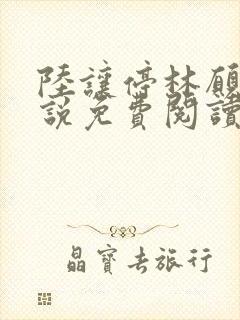 陸讓停林願
說免費閱讀
晶寶去旅行